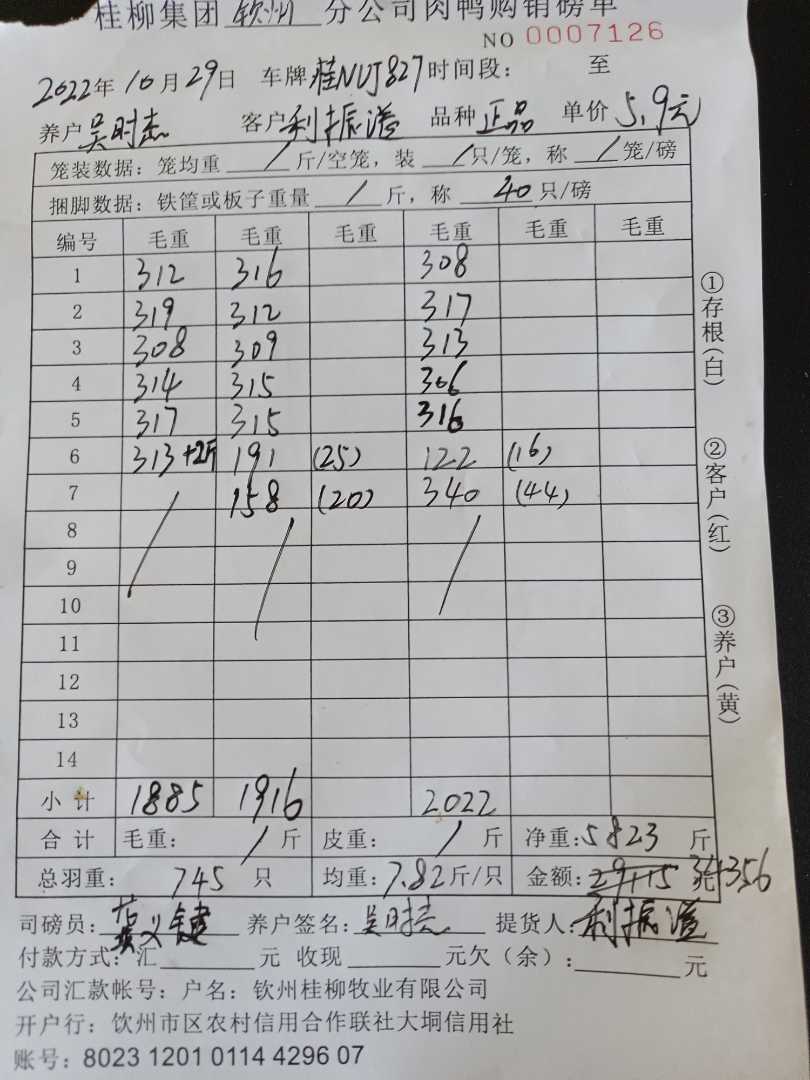 桂柳集团 钦州 分公司肉鸭购销磅单
NO 0007126
2022年10月29日 车牌桂NUJ827时间段: 至
养户吴时杰 客户利振溢 品种正品 单价5.9元
笼装数据: 笼均重 / 斤/空笼, 装 / 只/笼, 称 / 笼/磅
捆脚数据: 铁筐或板子重量 / 斤, 称 40 只/磅
编号 毛重 毛重 毛重 毛重 毛重 毛重
1 312 316 308
2 319 312 317
3 308 309 313
4 314 315 306
5 317 315 316
6 313+2斤 191 (25) 122 (16)
7 / 158 (20) 340 (44)
8 / /
9
10
11
12
13
14
小计 1885 1916 2022
合计 毛重: / 斤 皮重: / 斤 净重:5823 斤
总羽重: 745 只 均重:7.82斤/只 金额: 34356
司磅员: 义键 养户签名: 吴时杰 提货人:利振溢
付款方式:汇 元 收现 元欠(余): 元
公司汇款帐号: 户名: 钦州桂柳牧业有限公司
开户行: 钦州市区农村信用合作联社大垌信用社
账号: 8023 1201 0114 4296 07
①存根(白)
②客户(红)
③养户(黄)